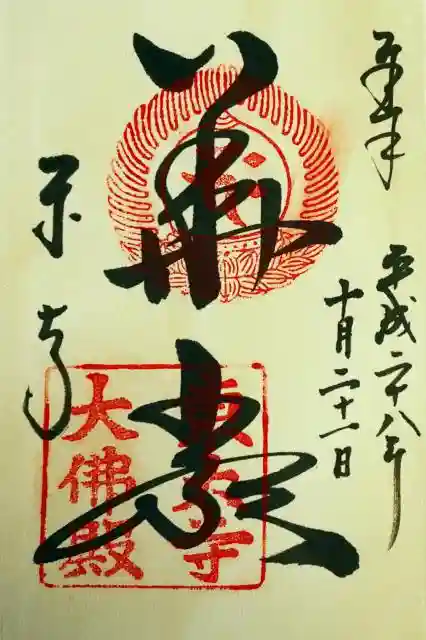 奉拝
平成二十八年
十月二十一日
華厳
東大寺
東大寺
大佛殿